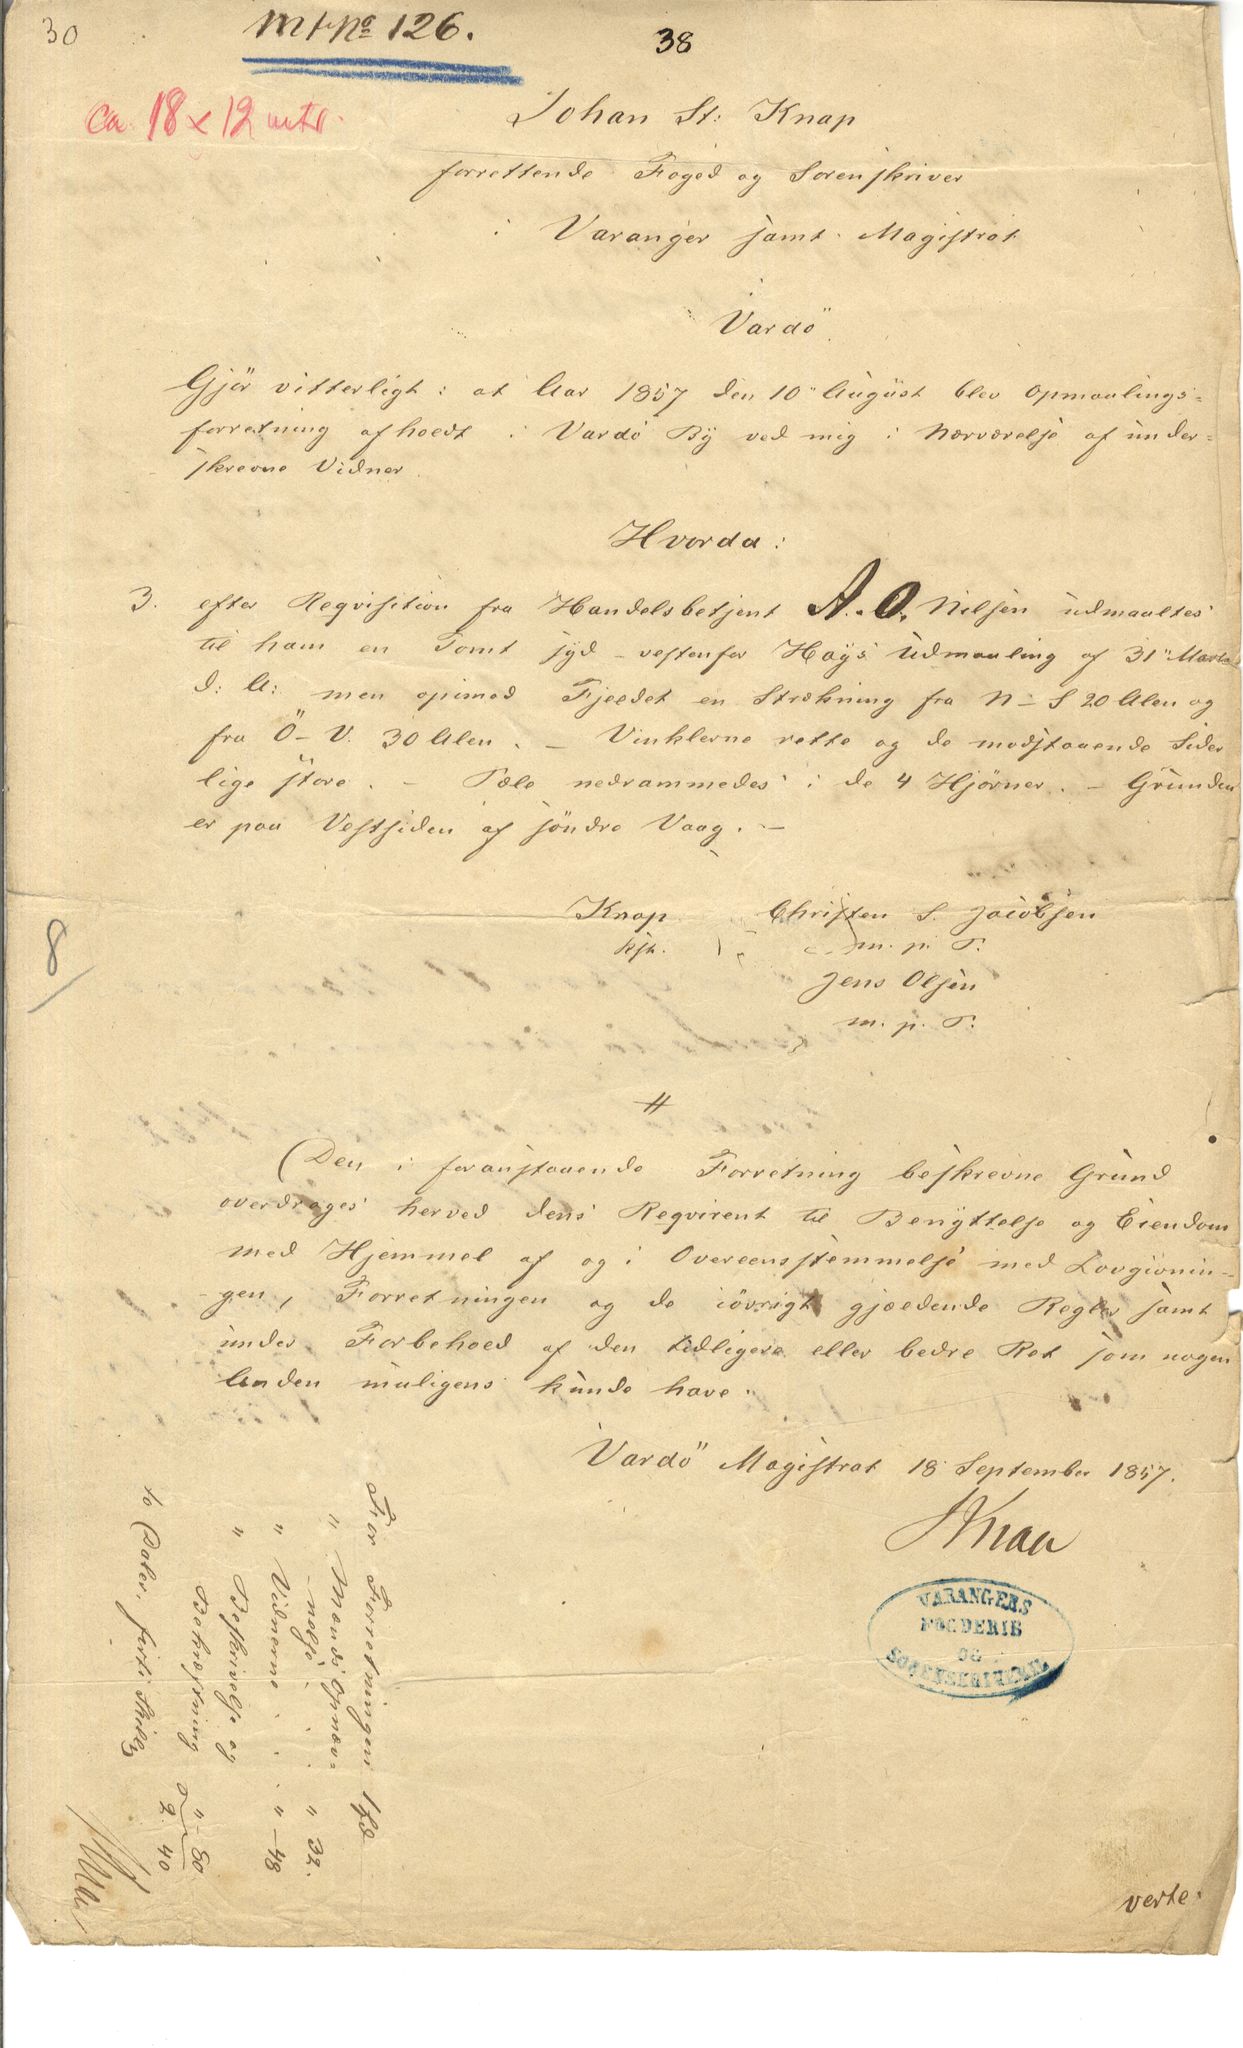 30
Mtr No 126.
38
ca. 18 x 12 mtr.
Johan St: Knap
forrettende Foged og Sorenskriver
i Varanger samt Magistrat
i
Vardö.
Gjör vitterligt: at Aar 1857 den 10 August blev Opmaalings-
forretning afholdt i Vardö By ved mig i Nærværelse af under-
skrevne Vidner.
Hvorda:
3. efter Reqvisition fra Handelsbetjent A. O. Nilsen udmaaltes
til ham en Tomt syd-vestenfor Hays Udmaaling af 31 Marts
d: A: men opimod Fjeldet en Strækning fra N-S 20 Alen og
fra Ö-V. 30 Alen. - Vinklerne rette og de modstaaende Sider
lige store. - Pæle nedrammedes i de 4 Hjörner. - Grunden
er paa Vestsiden af söndre Vaag. -
Knap Christen S. Jacobsen
kst. m. p. P.
Jens Olsen
m. p. P.
#
Den i foranstaaende Forretning beskrevne Grund
overdrages herved dens Reqvirent til Benyttelse og Eiendom
med Hjemmel af og i Overeensstemmelse med Lovgivnin-
gen, Forretningen og de iövrigt gjældende Regler samt
under Forbehold af den tidligere eller bedre Ret som nogen
Anden muligens kunde have.
Vardö Magistrat 18 September 1857.
Knap
VARANGERS
FOGDERIE
OG
SORENSKRIVERIE
For Forretningen 1 Spd
" Mands Opnæv-
nelse . . . " 32.
" Vidnerne . . . " - 48
" Beskrivelse og
Bekræftning " - 80
2. 40
to Daler, förti Skill
8
verte.